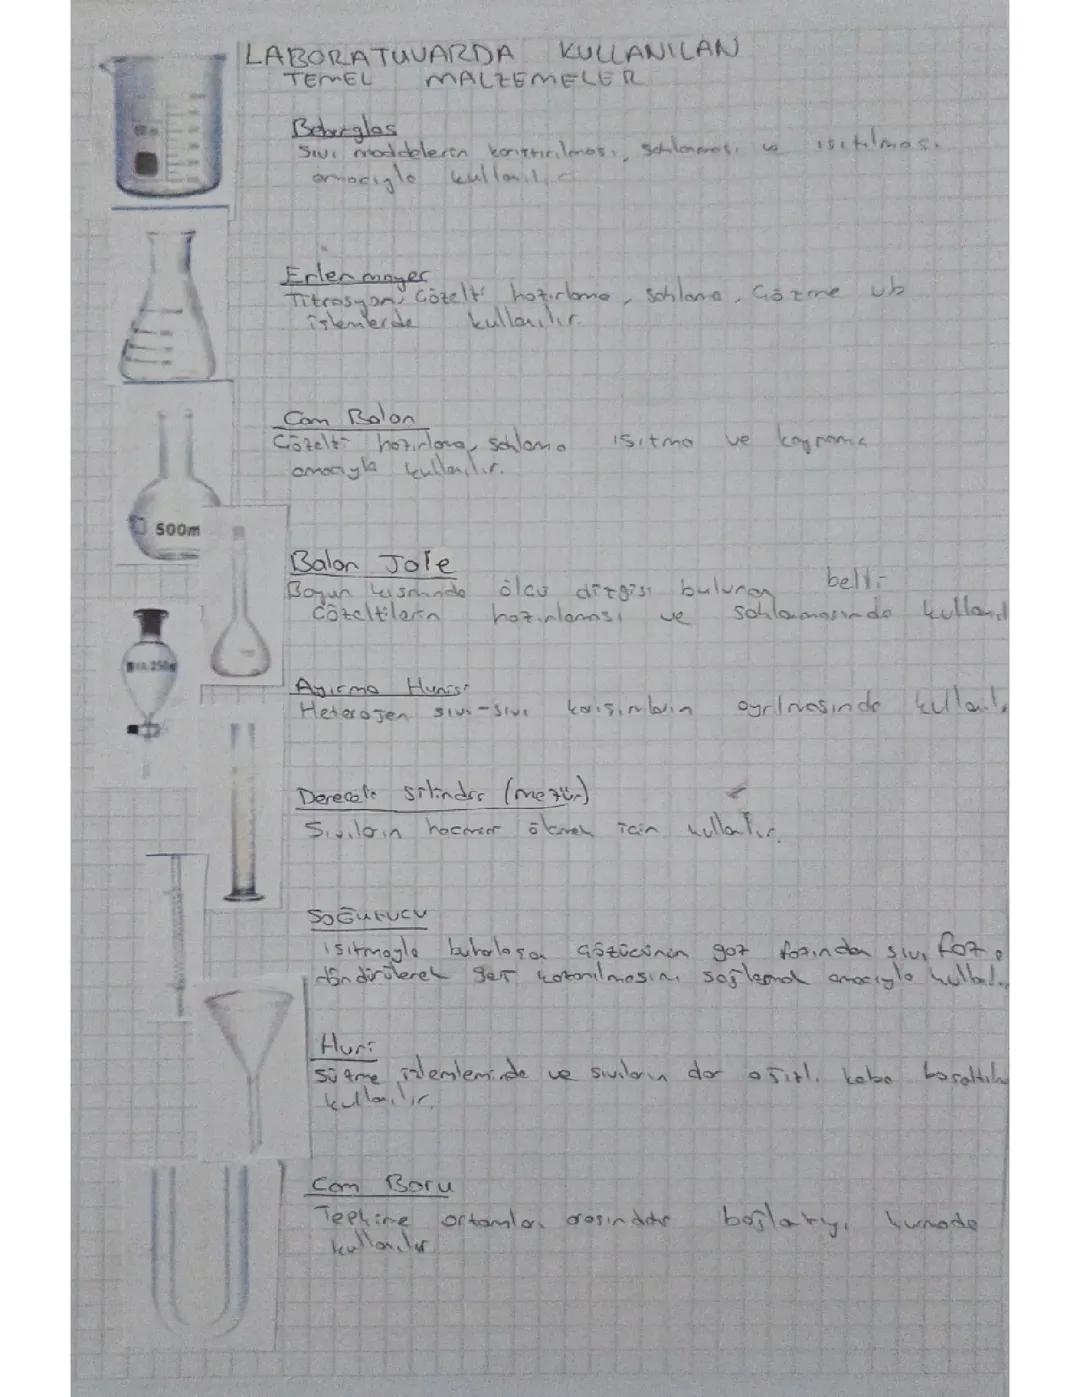 LABORATUVARDA KULLANILAN
TEMEL MALZEMELER
Beherglas
Sıvı maddelerin karıştırılması, saklanması ve ısıtılması
amacıyla kullanılır
Erlenmayer
Titrasyon, Çözelti hazırlama, saklama, Çözme vb
işlemlerde kullanılır.
Cam Balon
Çözelti hazırlama, saklama ısıtma ve kaynama
amacıyla kullanılır.
500m
Balon Joje
Boyun kısmında ölçü çizgisi bulunan belli
Çözeltilerin hazırlanması ve saklanmasında kullanıl
250
Ayırma Hunisi
Heterojen sıvı-sıvı karışımların ayrılmasında kullanılı
Dereceli silindir (mezür)
Sıvıların hacmini ölçmek için kullanılır.
SOĞUTUCU
ısıtmayla buharlaşan çözücünün gaz fazından sıvı faza
döndürülerek geri kazanılmasını sağlamak amacıyla kullanıl
Huni
Süzme işlemlerinde ve sıvıların dar ağızlı kaba boşaltılm
kullanılır.
Cam Boru
Tepkime ortamları arasındaki bağlantıyı kurmada
kullanılır